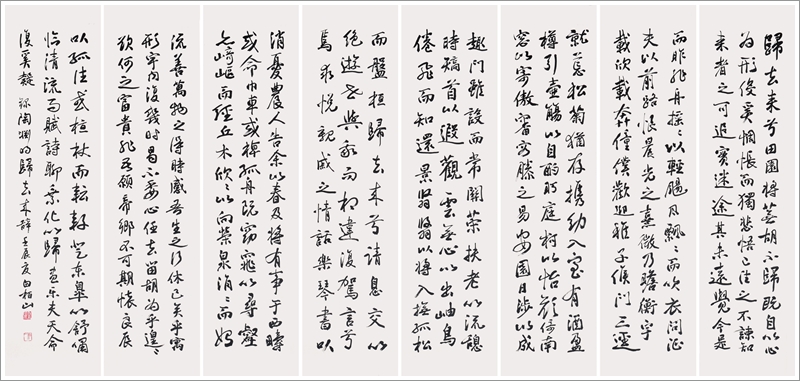 歸去来兮田園將蕪胡不歸既自以心
為形役奚惆悵而獨悲悟已往之不諫知
来者之可追寔迷途其未遠覺今是
而昨非舟摇々以輕颺風飄々而吹衣問征
夫以前路恨晨光之熹微乃瞻衡宇
載欣載奔僮僕歡迎稚子候門三逕
就荒松菊猶存携幼入室有酒盈
樽引壺觴以自酌眄庭柯以怡顏倚南
窗以寄傲審容膝之易安園日涉以成
趣門雖設而常關策扶老以流憩
時矯首以遐觀雲無心以出岫鳥
倦飛而知還景翳翳以將入撫孤松
而盤桓歸去来兮請息交以
絶遊世與我而相違復駕言兮
焉求悅親戚之情話樂琴書以
消憂農人告余以春及將有事于西疇
或命巾車或棹孤舟既窈窕以尋壑
亦崎嶇而經丘木欣々以向榮泉涓々而始
流善萬物之得時感吾生之行休已矣乎寓
形宇内復幾時曷不委心任去留胡為乎遑々
欲何之富貴非吾願帝鄉不可期懷良辰
以孤往或植杖而耘耔登東皋以舒嘯
临清流而賦詩聊乘化以歸盡樂夫天命
復奚疑 錄陶淵明歸去来辭壬辰夏白栢山